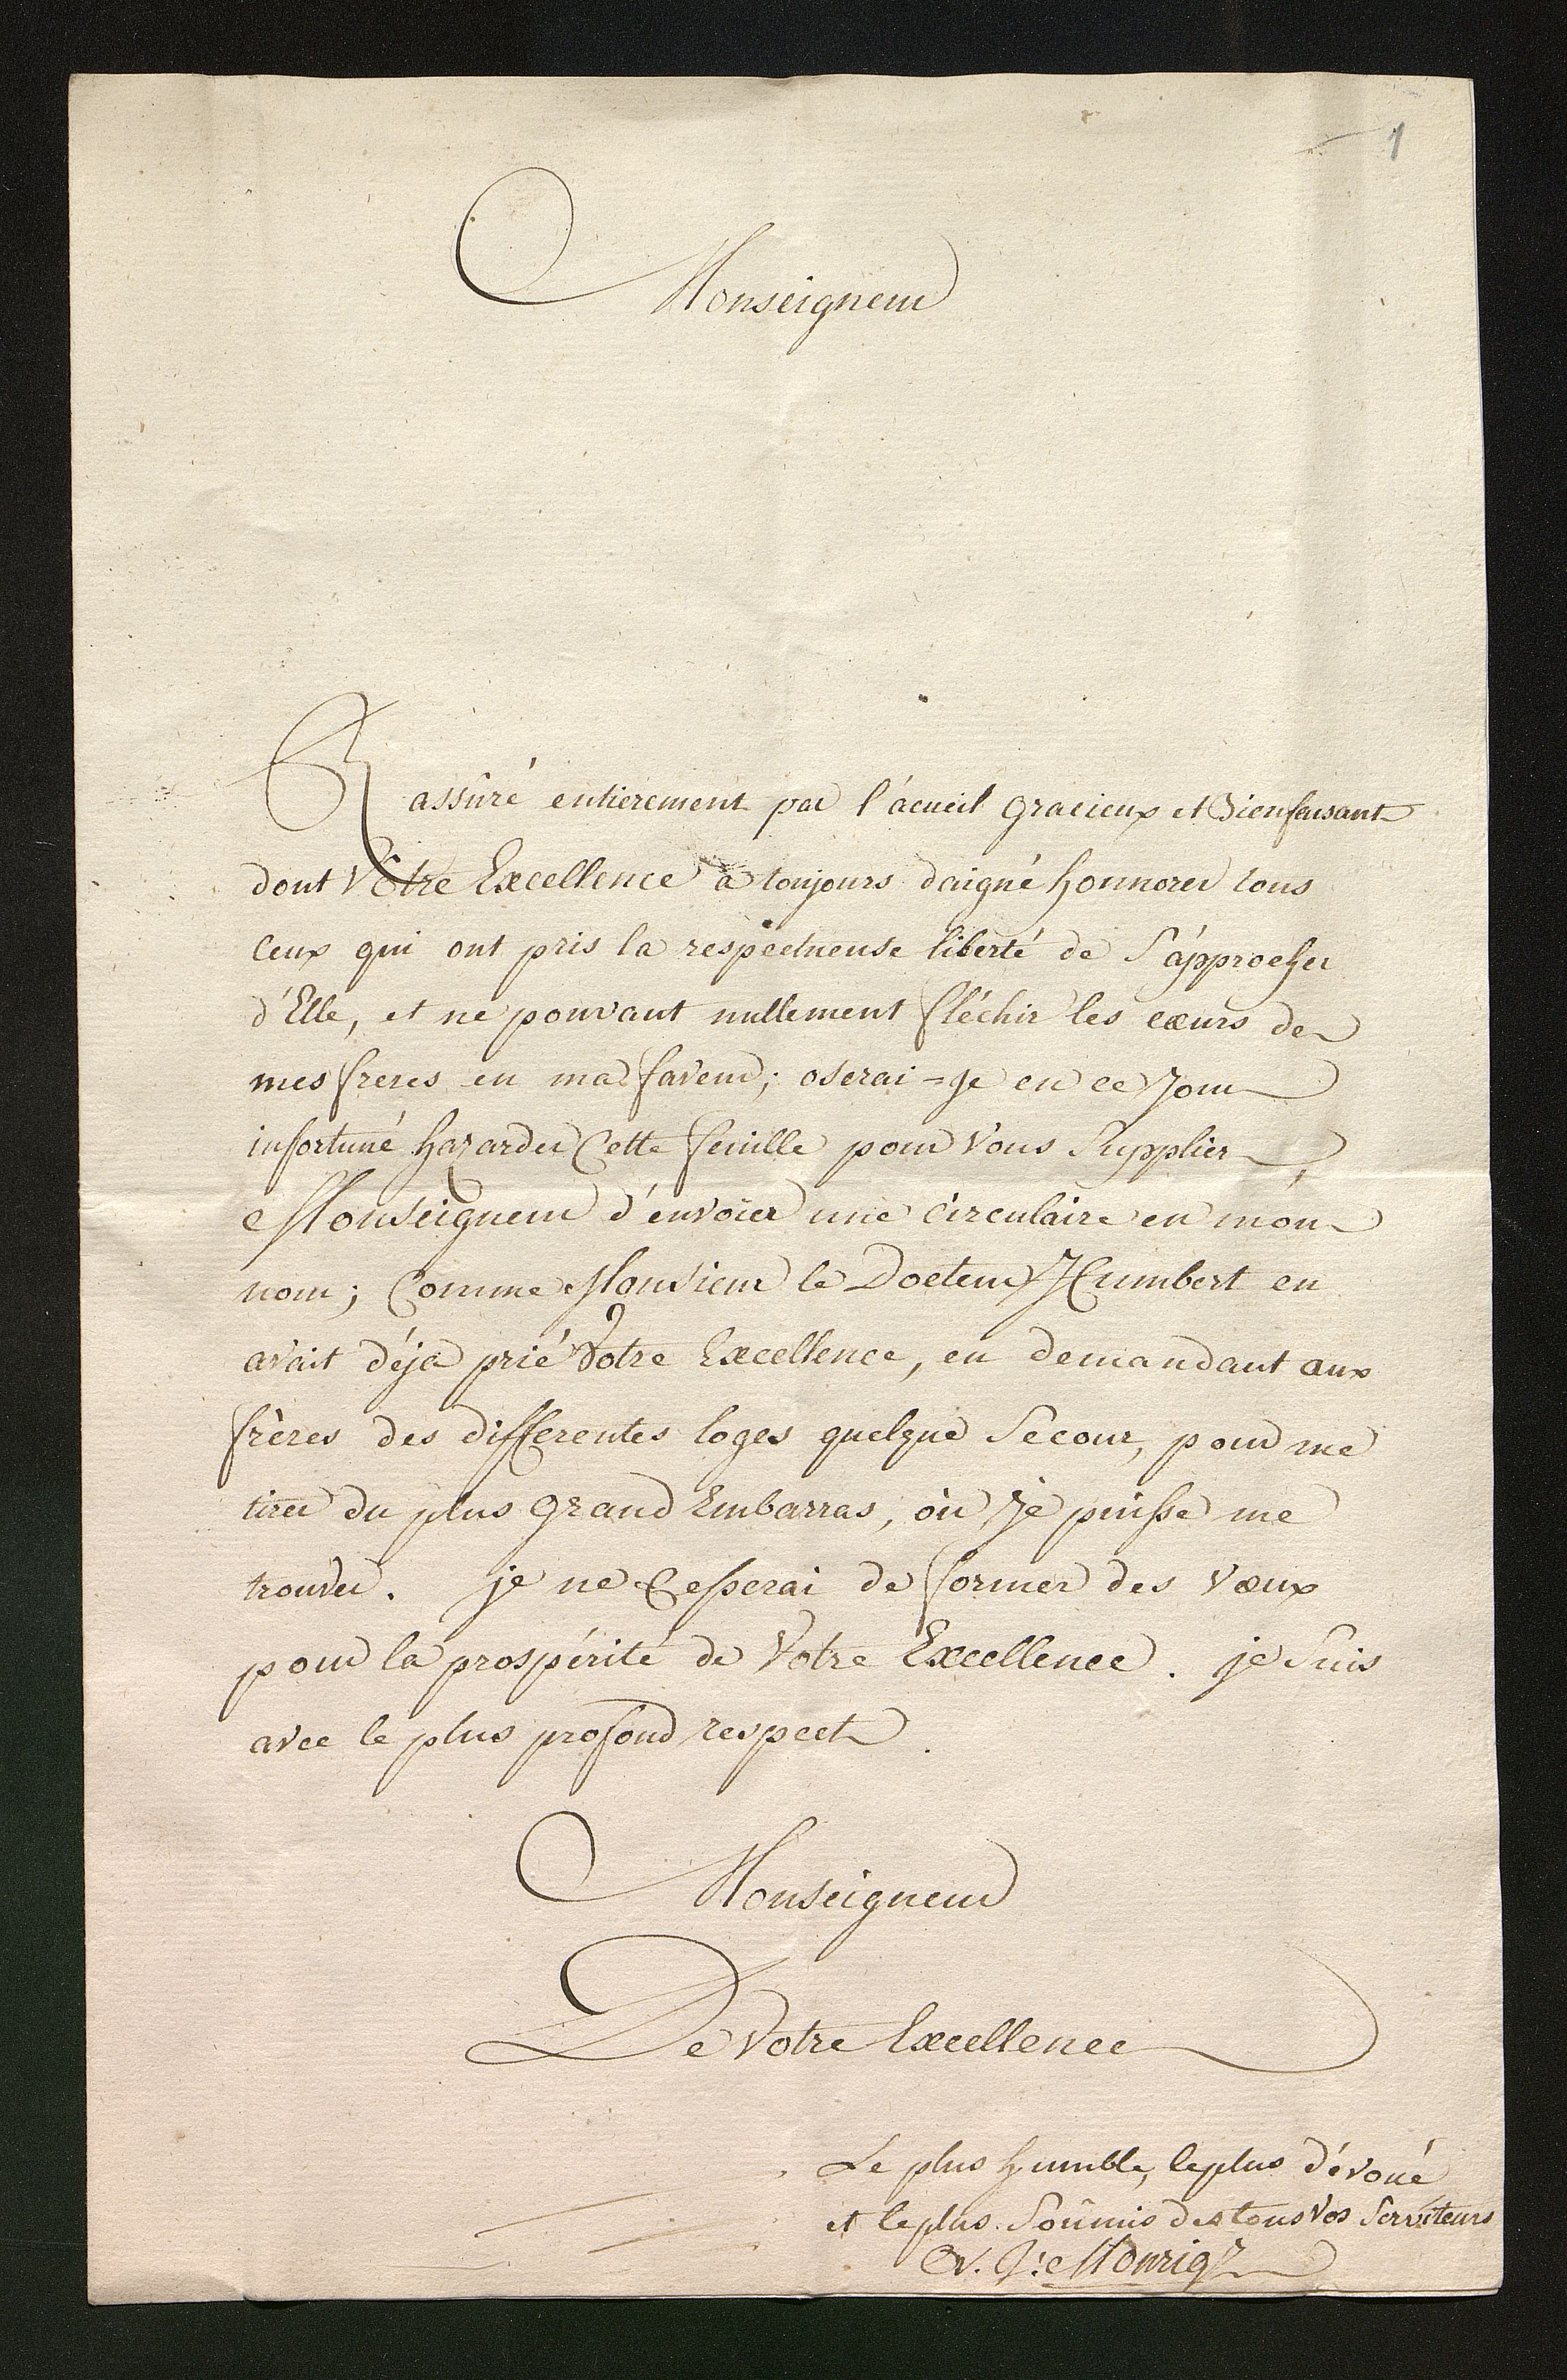 1
Monseigneur
Rassûré entierement par l'acueil gracieux et Bienfaisant
dont Vôtre Excellence a toujours daigné honnorer tous
Ceux qui ont pris la respectueuse liberté de S'approcher
d'Elle, et ne pouvant nullement fléchir les cœurs de
mes freres en ma faveur; oserai-je en ce jour
infortuné hazarder Cette feuille pour Vous Supplier,
Monseigneur d'envoïer une circulaire en mon
nom; Comme Monsieur le Docteur Humbert en
avait déja prié Votre Excellence, en demandant aux
frères des differentes loges quelque Secour, pour me
tirer du plus grand Embarras, où je puisse me
trouver. je ne Cesserai de former des vœux
pour la prospérité de Votre Excellence. je Suis
avec le plus profond respect.
Monseigneur
De Votre Excellence
Le plus humble, le plus dévoué
et le plus Soûmis des tous Vos Serviteurs